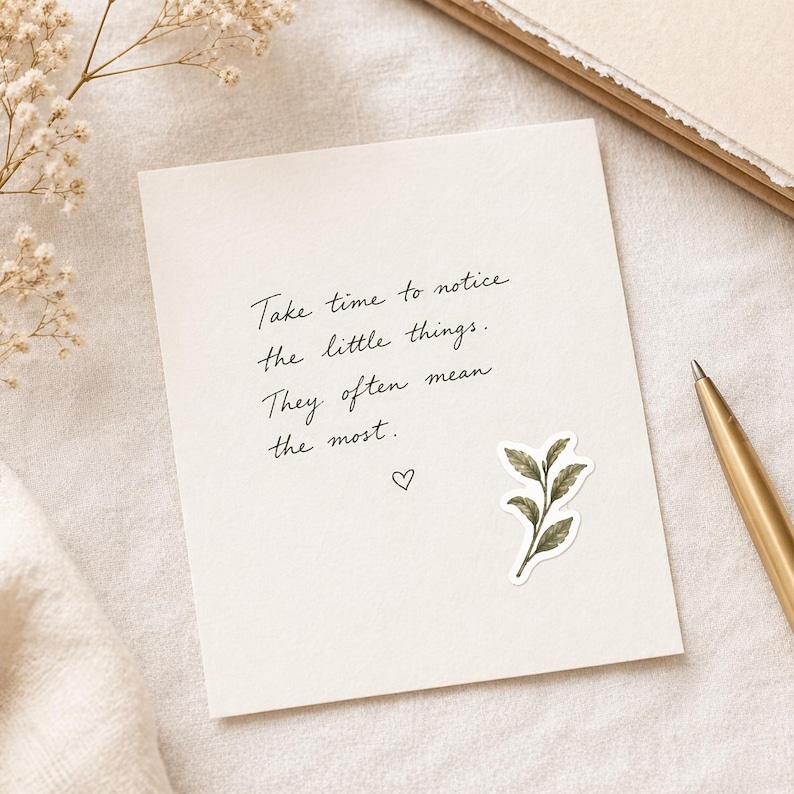 Take time to notice
the little things.
They often mean
the most.